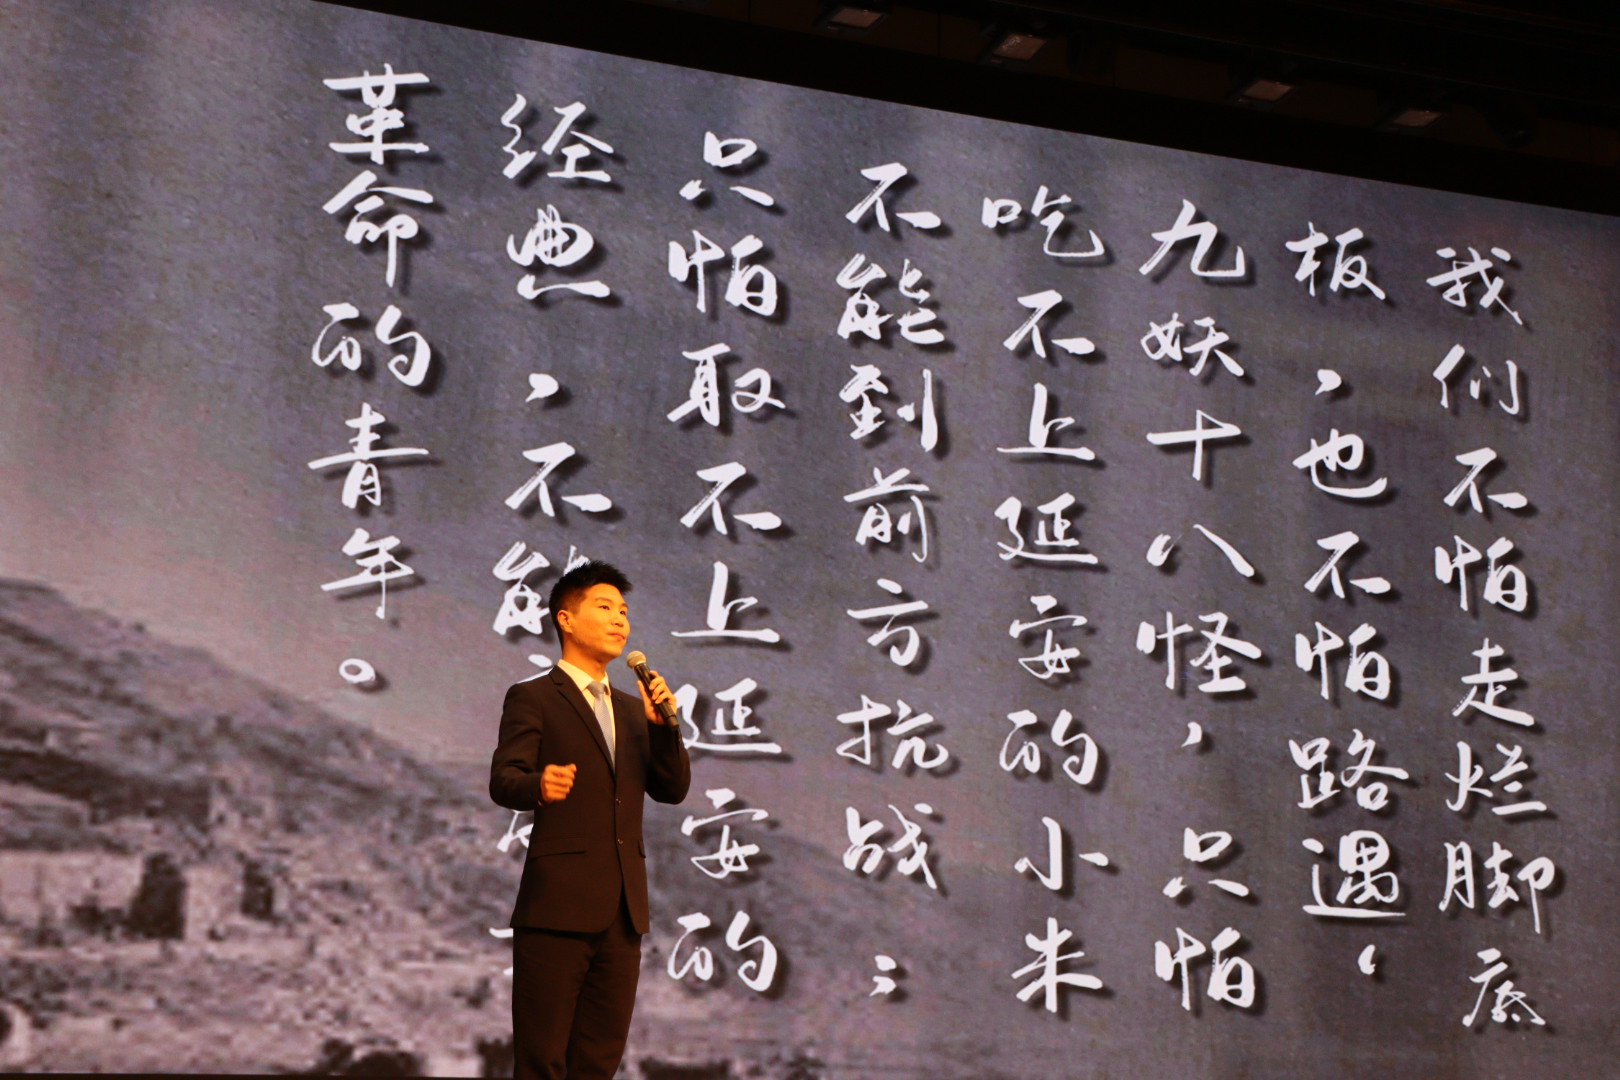 我们不怕走烂脚底
板，也不怕路遇，
九妖十八怪，只怕
吃不上延安的小米
不能到前方抗战；
只怕取不上延安的
经典，不能
革命的青年。